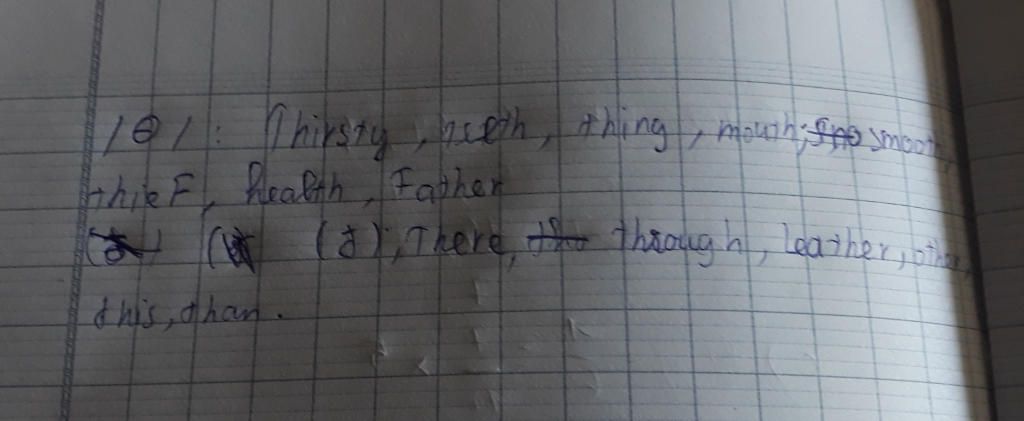 /θ/: Thirsty, teeth, thing, mouth, smooth,
thieF, health, Father
(ð), There, through, leather, other,
this, than.